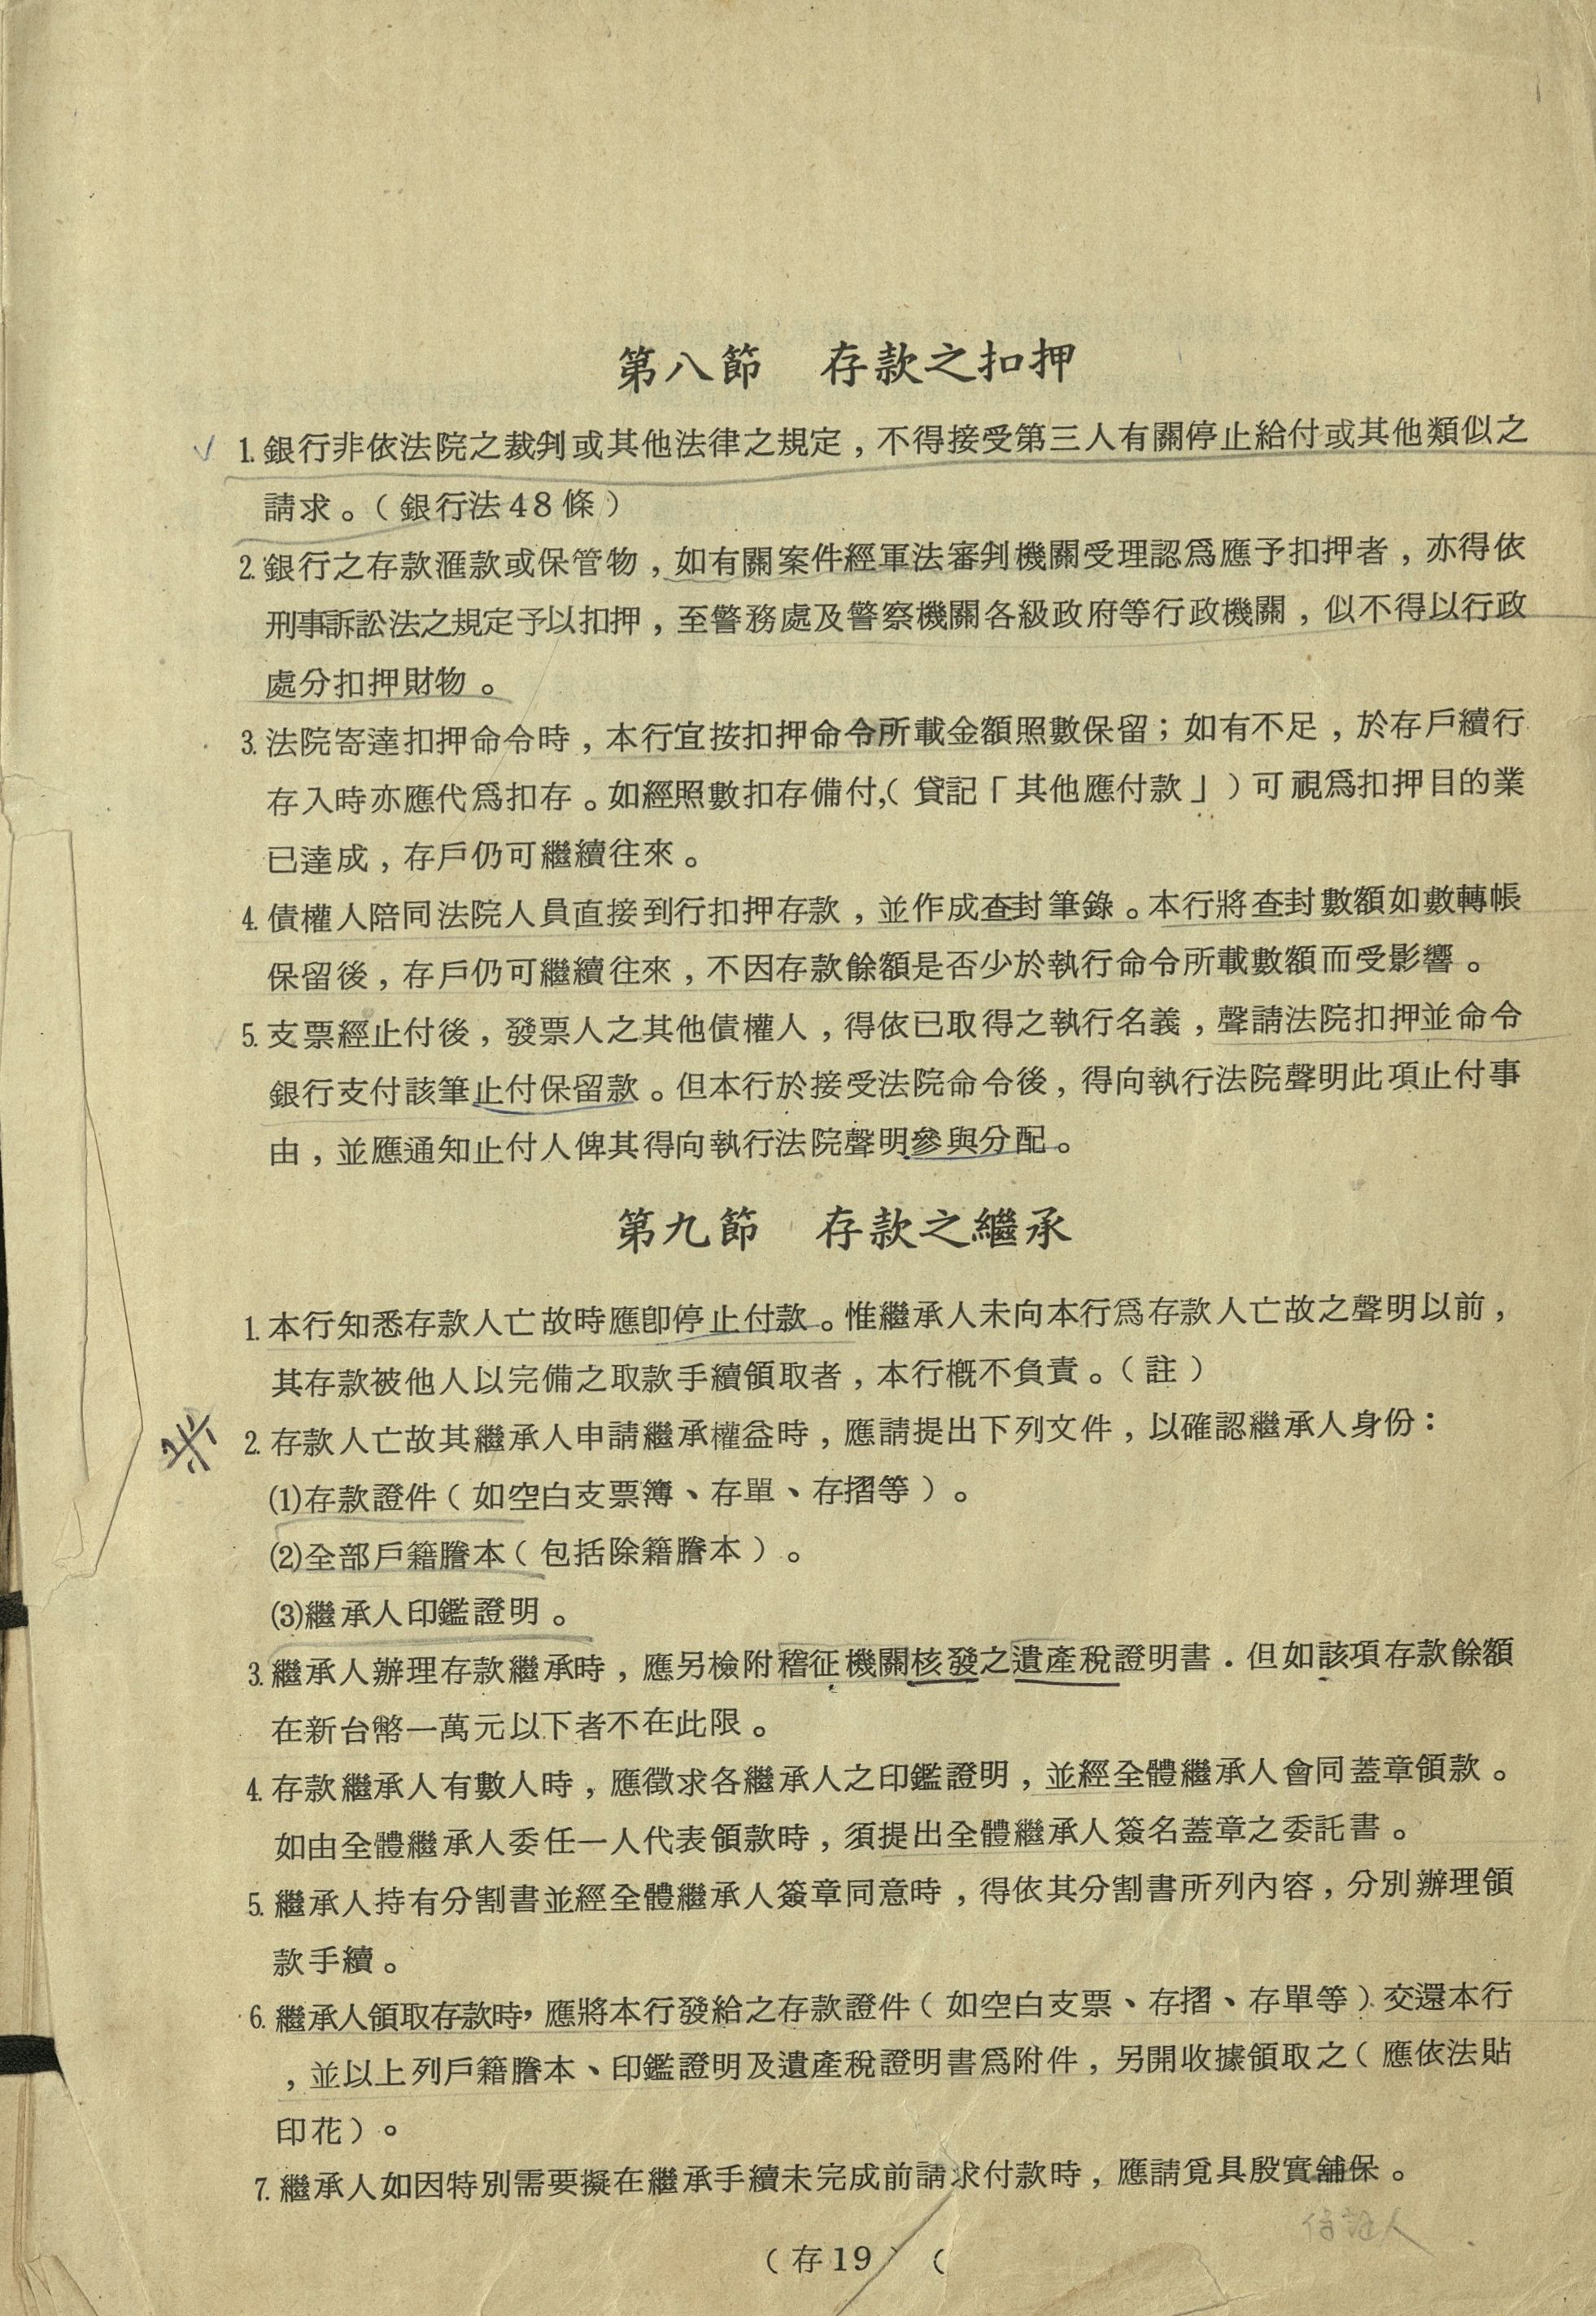 第八節　存款之扣押
1.銀行非依法院之裁判或其他法律之規定，不得接受第三人有關停止給付或其他類似之
請求。（銀行法48條）
2.銀行之存款滙款或保管物，如有關案件經軍法審判機關受理認爲應予扣押者，亦得依
刑事訴訟法之規定予以扣押，至警務處及警察機關各級政府等行政機關，似不得以行政
處分扣押財物。
3.法院寄達扣押命令時，本行宜按扣押命令所載金額照數保留；如有不足，於存戶續行
存入時亦應代爲扣存。如經照數扣存備付，（貸記「其他應付款」）可視爲扣押目的業
已達成，存戶仍可繼續往來。
4.債權人陪同法院人員直接到行扣押存款，並作成查封筆錄。本行將查封數額如數轉帳
保留後，存戶仍可繼續往來，不因存款餘額是否少於執行命令所載數額而受影響。
5.支票經止付後，發票人之其他債權人，得依已取得之執行名義，聲請法院扣押並命令
銀行支付該筆止付保留款。但本行於接受法院命令後，得向執行法院聲明此項止付事
由，並應通知止付人俾其得向執行法院聲明參與分配。
第九節　存款之繼承
1.本行知悉存款人亡故時應卽停止付款。惟繼承人未向本行爲存款人亡故之聲明以前，
其存款被他人以完備之取款手續領取者，本行概不負責。（註）
2.存款人亡故其繼承人申請繼承權益時，應請提出下列文件，以確認繼承人身份：
(1)存款證件（如空白支票簿、存單、存摺等）。
(2)全部戶籍謄本（包括除籍謄本）。
(3)繼承人印鑑證明。
3.繼承人辦理存款繼承時，應另檢附稽征機關核發之遺產稅證明書．但如該項存款餘額
在新台幣一萬元以下者不在此限。
4.存款繼承人有數人時，應徵求各繼承人之印鑑證明，並經全體繼承人會同蓋章領款。
如由全體繼承人委任一人代表領款時，須提出全體繼承人簽名蓋章之委託書。
5.繼承人持有分割書並經全體繼承人簽章同意時，得依其分割書所列內容，分別辦理領
款手續。
6.繼承人領取存款時，應將本行發給之存款證件（如空白支票、存摺、存單等）交還本行
，並以上列戶籍謄本、印鑑證明及遺產稅證明書爲附件，另開收據領取之（應依法貼
印花）。
7.繼承人如因特別需要擬在繼承手續未完成前請求付款時，應請覓具殷實舖保。
（存19）（